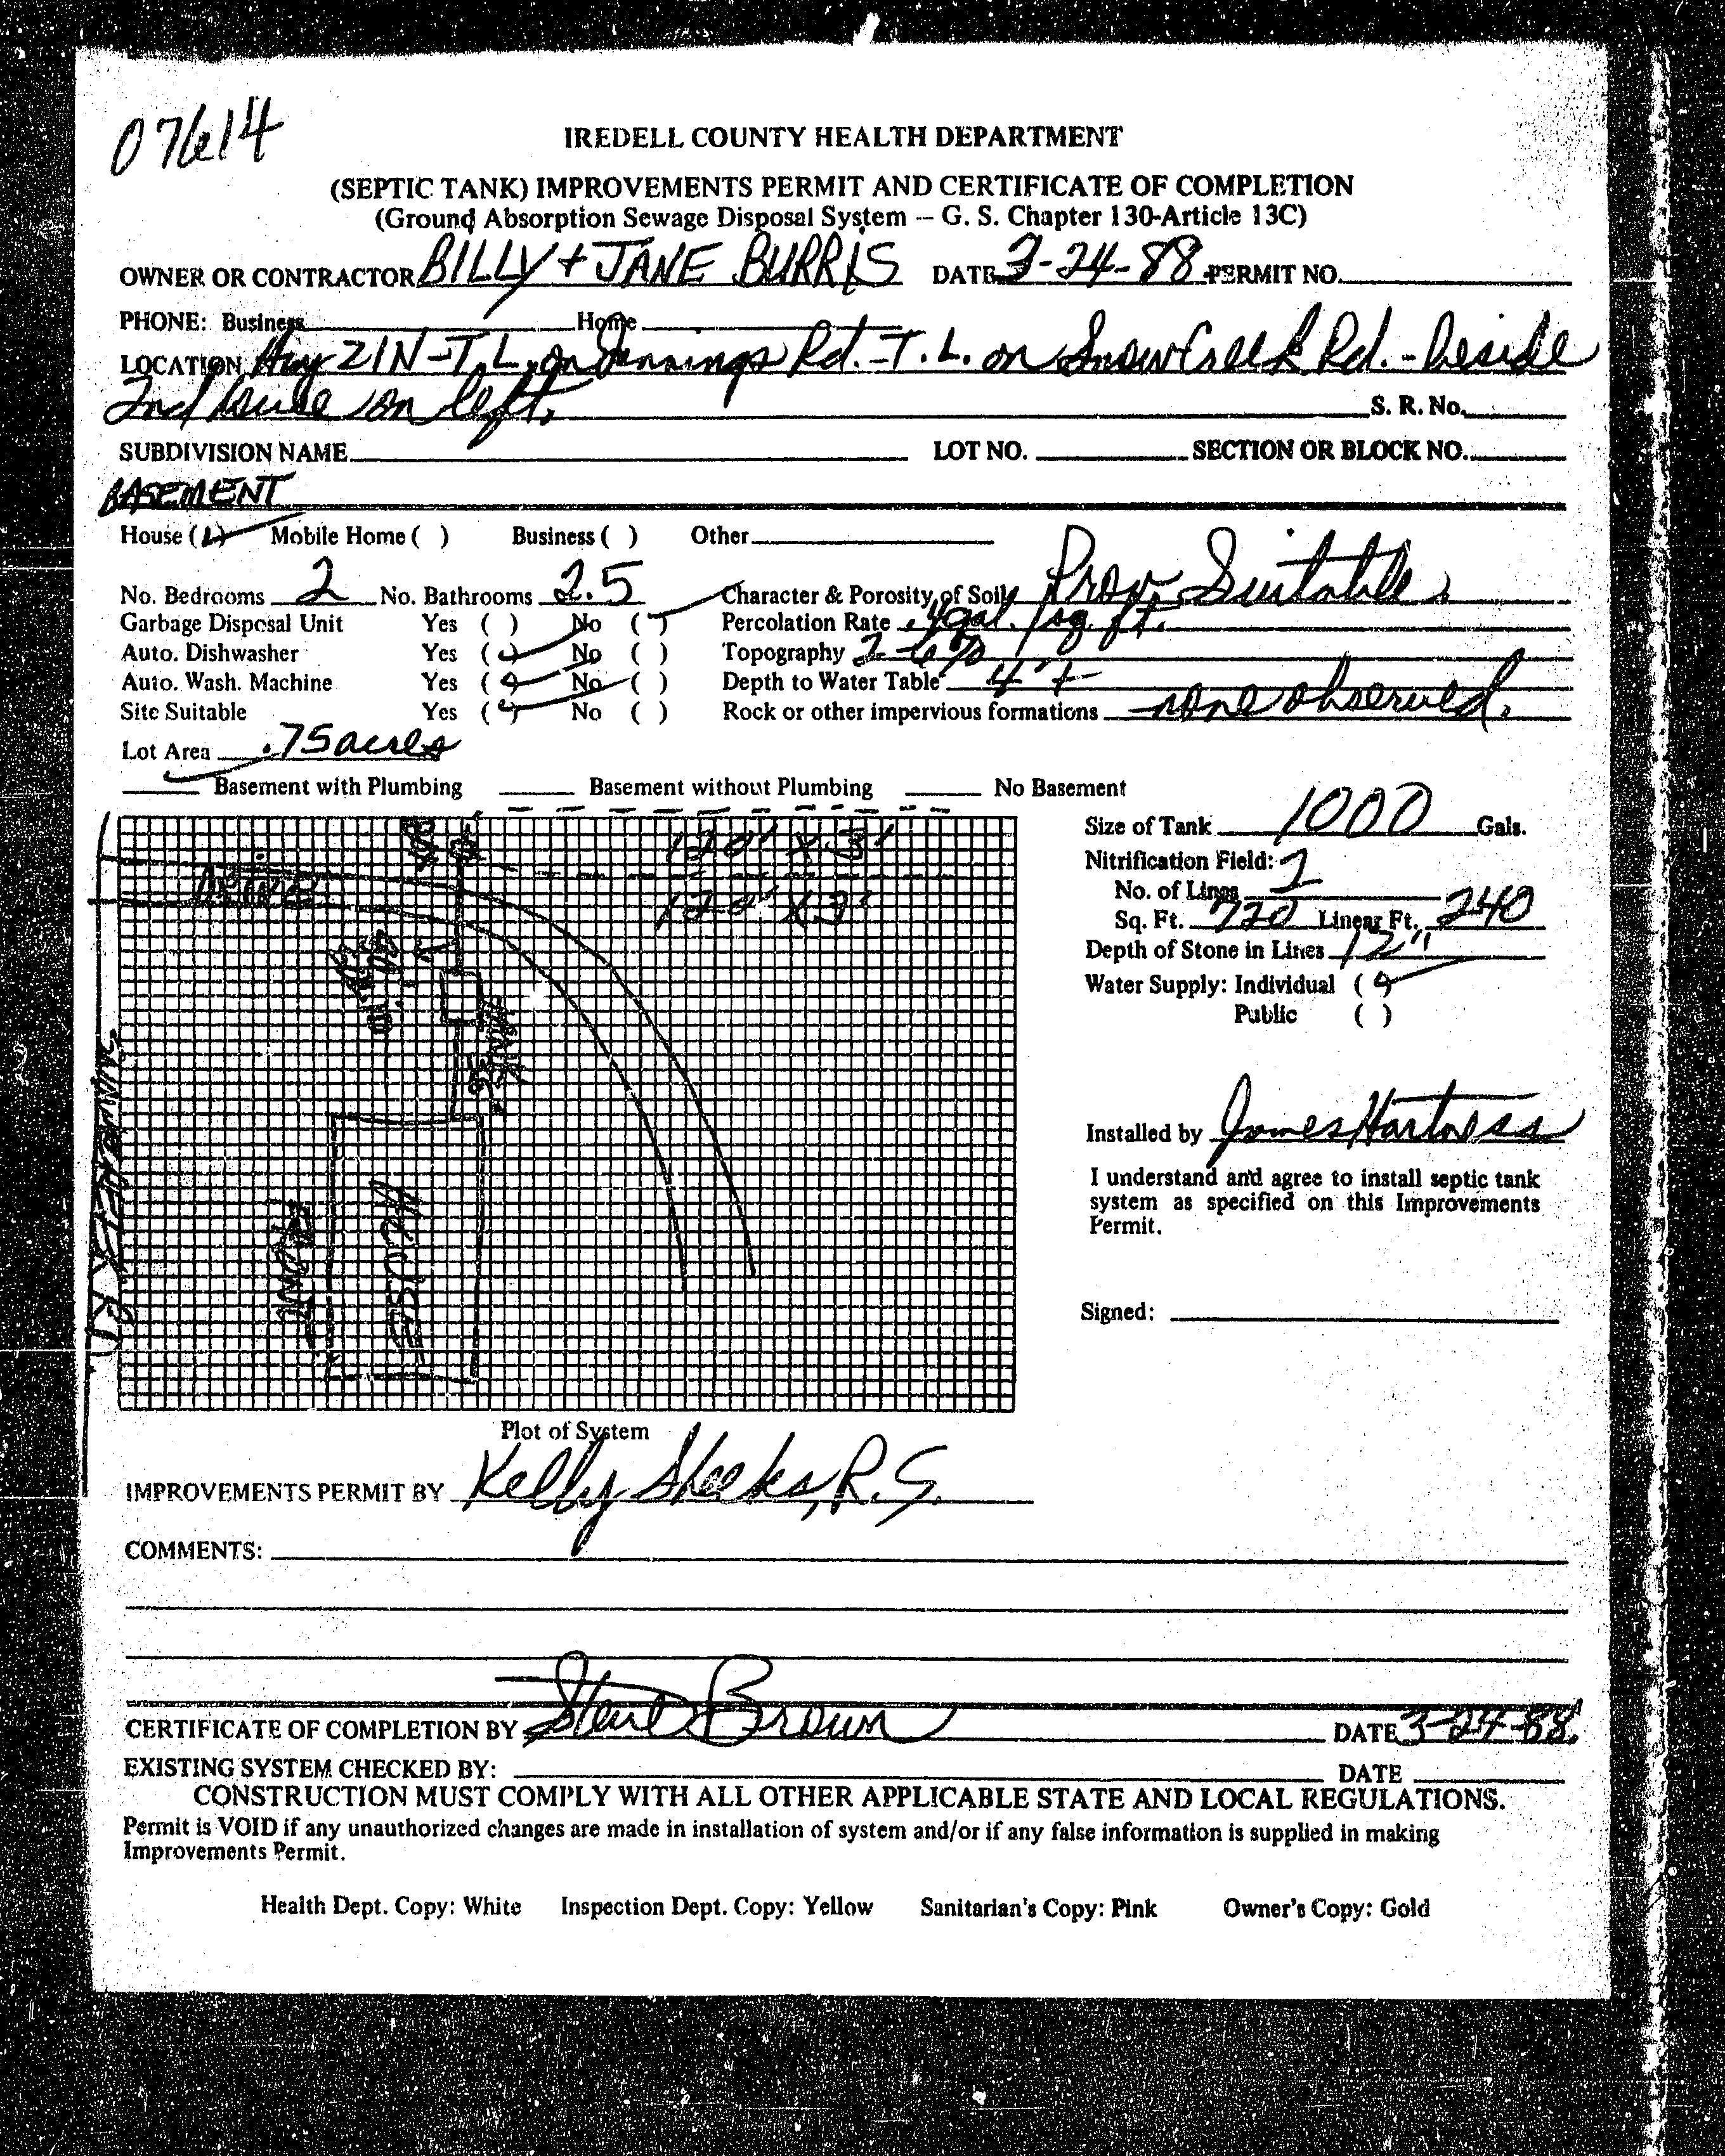 07614
IREDELL COUNTY HEALTH DEPARTMENT
(SEPTIC TANK) IMPROVEMENTS PERMIT AND CERTIFICATE OF COMPLETION
(Ground Absorption Sewage Disposal System -- G. S. Chapter 130-Article 13C)
OWNER OR CONTRACTOR BILLY + JANE BURRIS DATE 3-24-88 PERMIT NO.
PHONE: Business Home
LOCATION Hwy 21N - T.L. on Jennings Rd. - T.L. on Snow Creek Rd. - beside
2nd house on left. S. R. No.
SUBDIVISION NAME LOT NO. SECTION OR BLOCK NO.
BASEMENT
House (✓) Mobile Home ( ) Business ( ) Other
No. Bedrooms 2 No. Bathrooms 2.5 Character & Porosity of Soil Prov. Suitable.
Garbage Disposal Unit Yes ( ) No (✓) Percolation Rate .4 gal./sq. ft.
Auto. Dishwasher Yes (✓) No ( ) Topography 2-6%
Auto. Wash. Machine Yes (✓) No ( ) Depth to Water Table 4'+
Site Suitable Yes (✓) No ( ) Rock or other impervious formations none observed.
Lot Area .75 acres
✓ Basement with Plumbing Basement without Plumbing No Basement
120' X 3'
120' X 3'
TANK
HOUSE
FRONT
Size of Tank 1000 Gals.
Nitrification Field:
No. of Lines 2
Sq. Ft. 720 Linear Ft. 240
Depth of Stone in Lines 12"
Water Supply: Individual (✓)
Public ( )
Installed by James Hartness
I understand and agree to install septic tank
system as specified on this Improvements
Permit.
Signed:
Plot of System
IMPROVEMENTS PERMIT BY Kelly Sheeks, R.S.
COMMENTS:
CERTIFICATE OF COMPLETION BY Steve Brown DATE 3-24-88.
EXISTING SYSTEM CHECKED BY: DATE
CONSTRUCTION MUST COMPLY WITH ALL OTHER APPLICABLE STATE AND LOCAL REGULATIONS.
Permit is VOID if any unauthorized changes are made in installation of system and/or if any false information is supplied in making
Improvements Permit.
Health Dept. Copy: White Inspection Dept. Copy: Yellow Sanitarian's Copy: Pink Owner's Copy: Gold